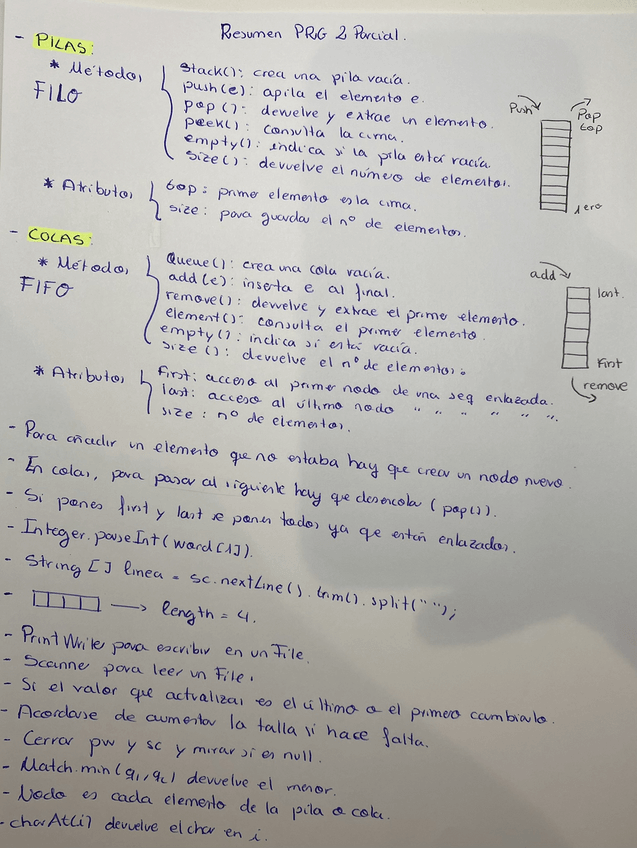 Resumen PRG 2 Parcial.
- PILAS:
* Métodos
FILO
stack(): crea una pila vacía.
push(e): apila el elemento e.
pop(): devuelve y extrae un elemento.
peek(): consulta la cima.
empty(): indica si la pila está vacía.
size(): devuelve el número de elementos.
Push
Pop
top
1ero
* Atributos
top: primer elemento en la cima.
size: para guardar el nº de elementos.
- COLAS:
* Métodos
FIFO
Queue(): crea una cola vacía.
add(e): inserta e al final.
remove(): devuelve y extrae el primer elemento.
element(): consulta el primer elemento.
empty(): indica si está vacía.
size(): devuelve el nº de elementos.
add
last.
first
remove
* Atributos
First: acceso al primer nodo de una seq enlazada.
last: acceso al último nodo " " " " " ".
size: nº de elementos.
- Para añadir un elemento que no estaba hay que crear un nodo nuevo.
- En colas, para pasar al siguiente hay que desencolar (pop()).
- Si pones first y last se ponen todos ya que están enlazados.
- Integer.parseInt(word[1]).
- String [] linea = sc.nextLine().trim().split(" ");
- → length = 4.
- PrintWriter para escribir en un File.
- Scanner para leer un File.
- Si el valor que actualizas es el último o el primero cambiarlo.
- Acordarse de aumentar la talla si hace falta.
- Cerrar pw y sc y mirar si es null.
- Match.min(q1, q2) devuelve el menor.
- Nodo es cada elemento de la pila o cola.
- charAt(i) devuelve el char en i.